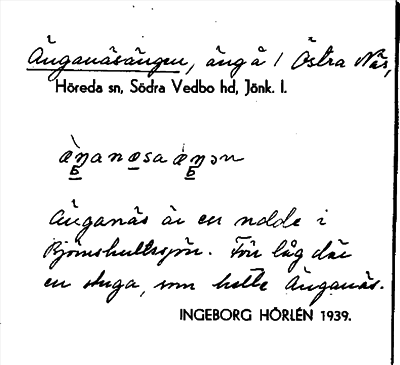 Änganäsängen, äng å 1 Östra Näs,
Höreda sn, Södra Vedbo hd, Jönk. l.
Änganäs är en udde i
Björnshultssjön. Förr låg där
en stuga, som hette Änganäs.
INGEBORG HÖRLÉN 1939.